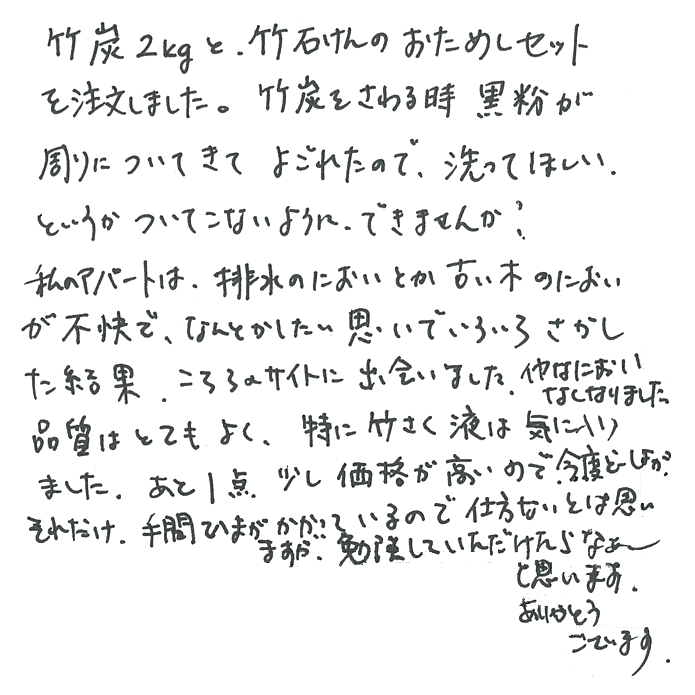 竹炭2kgと、竹石けんのおためしセット
を注文しました。竹炭をさわる時黒粉が
周りについてきてよごれたので、洗ってほしい。
というかついてこないように、できませんか?
私のアパートは、排水のにおいとか古い木のにおい
が不快で、なんとかしたい思いでいろいろさがし
た結果、こちらのサイトに出会いました。
なくなりました
品質はとてもよく、特に竹さく液は気に入り
ました。あと1点少し価格が高いので
それだけ、手間ひまがかかっているので仕方ないとは思い
ますが、勉強していただけたらなぁ〜
と思います。
ありがとう
ございます。